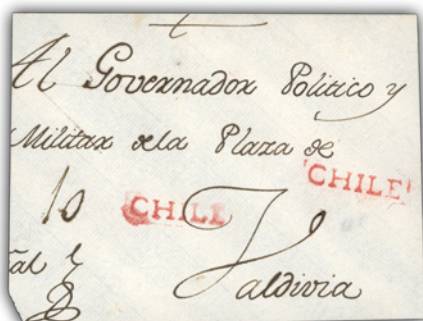 Al Governador Politico y
Militar dela Plaza de
CHILE
10 CHILE
Valdivia